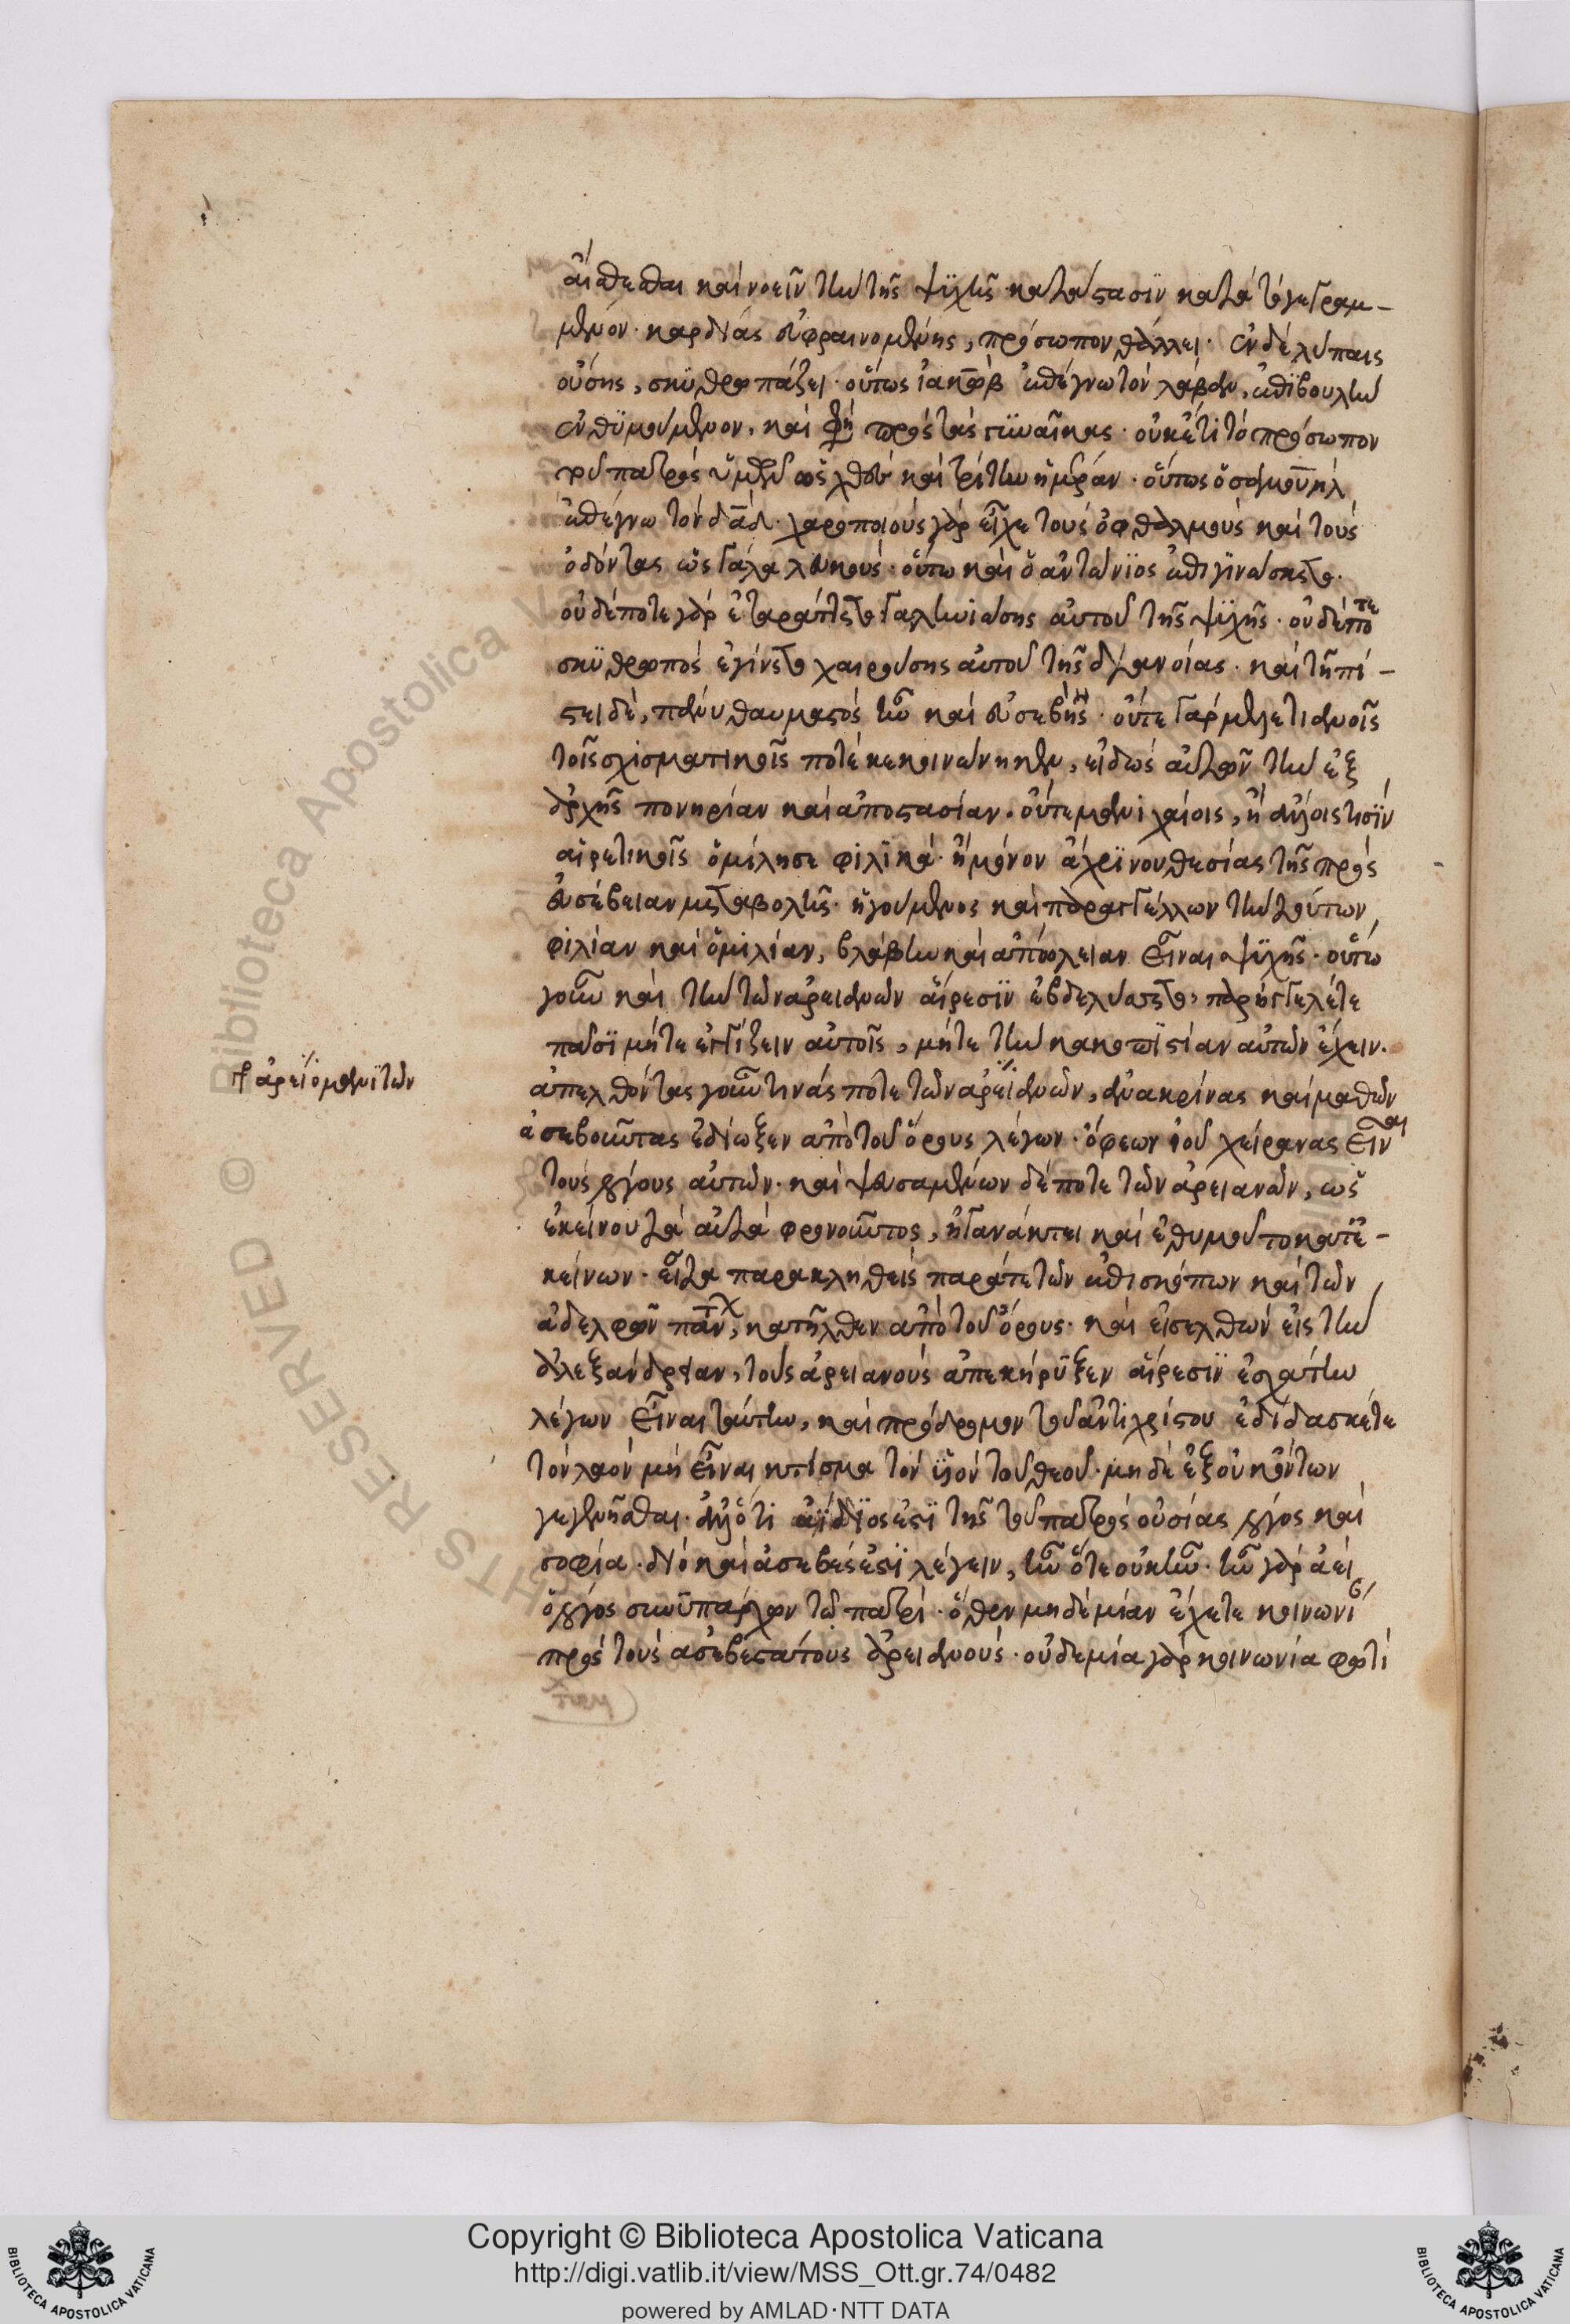 αἰσθέσθαι καὶ νοεῖν τὴν τῆς ψυχῆς κατάστασιν κατὰ τὸ γεγραμ-
μένον· καρδίας εὐφραινομένης, πρόσωπον θάλλει· ἐν δὲ λύπαις
οὔσης, σκυθρωπάζει· οὕτως ἰακὼβ ἐπέγνω τὸν λάβαν, ἐπιβουλὴν
ἐνθυμούμενον, καὶ φη πρὸς τὰς γυναῖκας· οὐκέτι τὸ πρόσωπον
τοῦ πατρὸς ὑμῶν ὡς χθὲς καὶ τρίτην ἡμέραν· οὕτως ὁ σαμουὴλ
ἐπέγνω τὸν δᾱδ· χαροποιοὺς γὰρ εἶχε τοὺς ὀφθαλμοὺς καὶ τοὺς
ὀδόντας ὡς γάλα λευκούς· οὕτω καὶ ὁ ἀντώνιος ἐπιγινώσκετο·
οὐδέποτε γὰρ ἐταράττετο γαληνιώσης αὐτοῦ τῆς ψυχῆς· οὐδέποτε
σκυθρωπὸς ἐγίνετο χαιρούσης αὐτοῦ τῆς διανοίας· καὶ τῇ πί-
στει δὲ, πάνυ θαυμαστὸς ἦν καὶ εὐσεβὴς· οὔτε γὰρ μελετιανοῖς
τοῖς σχισματικοῖς ποτὲ κεκοινώνηκεν, εἰδὼς αὐτῶν τὴν ἐξ
ἀρχῆς πονηρίαν καὶ ἀποστασίαν· οὔτε μανιχαίοις, ἢ ἄλλοις τισὶν
αἱρετικοῖς ὡμίλησε φιλικά· ἢ μόνον ἄχρι νουθεσίας τῆς πρὸς
εὐσέβειαν μεταβολῆς· ἡγούμενος καὶ παραγγέλλων τὴν τούτων
φιλίαν καὶ ὁμιλίαν, βλάβην καὶ ἀπώλειαν εἶναι ψυχῆς· οὕτω
γοῦν καὶ τὴν τῶν ἀρειανῶν αἵρεσιν ἐβδελύσσετο, παρήγγελέ τε
πᾶσι μήτε ἐγγίζειν αὐτοῖς, μήτε τὴν κακοπιστίαν αὐτῶν ἔχειν·
ἀπελθόντας γοῦν τινάς ποτε τῶν ἀρειανῶν, ἀνακρίνας καὶ μαθὼν
ἀρειομανιτῶν
ἀσεβοῦντας ἐδίωξεν ἀπὸ τοῦ ὄρους λέγων· ὄφεων ἰοῦ χείρονας εἶναι
τοὺς λόγους αὐτῶν· καὶ ψευσαμένων δέ ποτε τῶν ἀρειανῶν, ὡς
ἐκείνου τὰ αὐτὰ φρονοῦντος, ἠγανάκτει καὶ ἐθυμοῦτο κατ' ἐ-
κείνων· εἶτα παρακληθεὶς παρά τε τῶν ἐπισκόπων καὶ τῶν
ἀδελφῶν πάντων, κατῆλθεν ἀπὸ τοῦ ὄρους· καὶ εἰσελθὼν εἰς τὴν
ἀλεξάνδρειαν, τοὺς ἀρειανοὺς ἀπεκήρυξεν αἵρεσιν ἐσχάτην
λέγων εἶναι ταύτην, καὶ πρόδρομον τοῦ ἀντιχρίστου ἐδίδασκέ τε
τὸν λαὸν μὴ εἶναι κτίσμα τὸν υἱὸν τοῦ θεοῦ· μηδὲ ἐξ οὐκ ὄντων
γεγενῆσθαι· ἀλλ' ὅτι ἀΐδιός ἐστι τῆς τοῦ πατρὸς οὐσίας λόγος καὶ
σοφία· διὸ καὶ ἀσεβές ἐστι λέγειν, ἦν ὅτε οὐκ ἦν· ἦν γὰρ ἀεὶ
ὁ λόγος συνυπάρχων τῷ πατρί· ὅθεν μηδεμίαν ἔχετε κοινωνί
πρὸς τοὺς ἀσεβεστάτους ἀρειανούς· οὐδεμία γὰρ κοινωνία φωτὶ
Copyright © Biblioteca Apostolica Vaticana
http://digi.vatlib.it/view/MSS_Ott.gr.74/0482
powered by AMLAD·NTT DATA
BIBLIOTECA APOSTOLICA VATICANA
BIBLIOTECA APOSTOLICA VATICANA